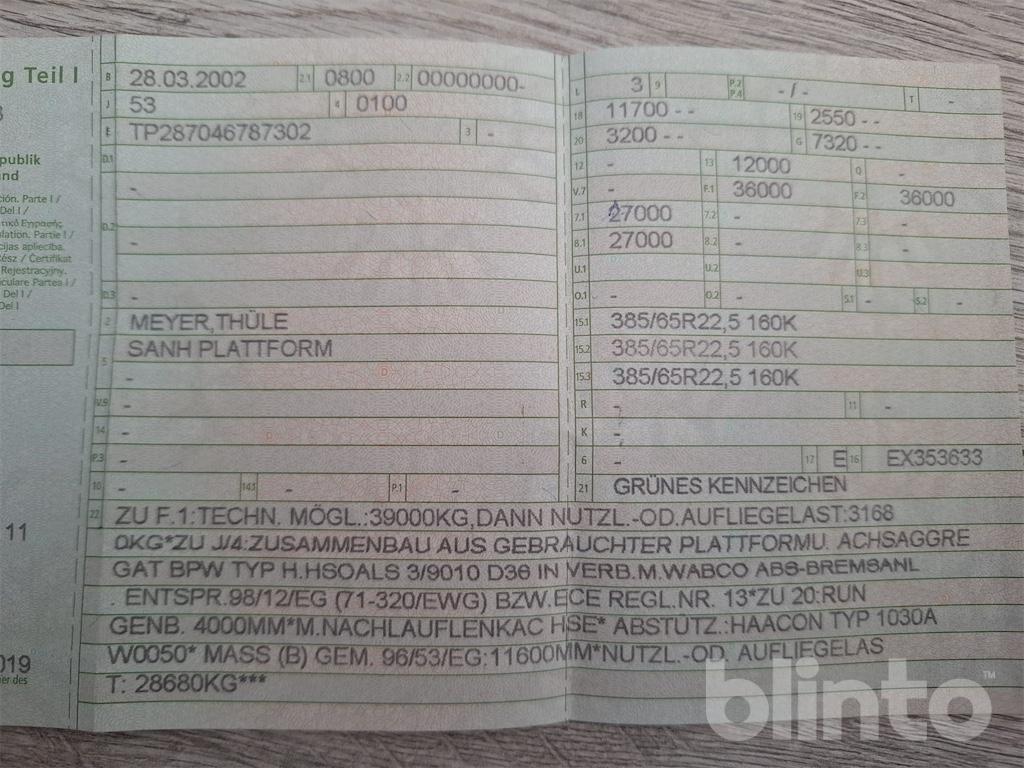 g Teil I
publik
nd
ción. Parte I /
Del I /
lation. Partie I /
cijas apliecība.
Rész / Certifikat
Rejestracyjny.
culare Partea I /
Del I /
Del I
11
019
er des
B 28.03.2002 2.1 0800 2.2 00000000-
J 53 4 0100
E TP287046787302 3 -
D.1
-
D.2
-
D.3 -
2 MEYER,THÜLE
5 SANH PLATTFORM
-
V.9 -
14 -
P.3 -
10 - 14.1 - P.1 -
L 3 9 P.2 P.4 - / - T -
18 11700 - - 19 2550 - -
20 3200 - - G 7320 - -
12 - 13 12000 Q -
V.7 - F.1 36000 F.2 36000
7.1 27000 7.2 - 7.3 -
8.1 27000 8.2 - 8.3 -
U.1 - U.2 - U.3 -
O.1 - O.2 - S.1 - S.2 -
15.1 385/65R22,5 160K
15.2 385/65R22,5 160K
15.3 385/65R22,5 160K
R - 11 -
K -
6 - 17 E 16 EX353633
21 GRÜNES KENNZEICHEN
22 ZU F.1:TECHN. MÖGL.:39000KG,DANN NUTZL.-OD.AUFLIEGELAST:3168
0KG*ZU J/4:ZUSAMMENBAU AUS GEBRAUCHTER PLATTFORMU. ACHSAGGRE
GAT BPW TYP H.HSOALS 3/9010 D36 IN VERB.M.WABCO ABS-BREMSANL
. ENTSPR.98/12/EG (71-320/EWG) BZW.ECE REGL.NR. 13*ZU 20:RUN
GENB. 4000MM*M.NACHLAUFLENKAC HSE* ABSTÜTZ.:HAACON TYP 1030A
W0050* MASS (B) GEM. 96/53/EG:11600MM*NUTZL.-OD. AUFLIEGELAS
T: 28680KG***
blinto™